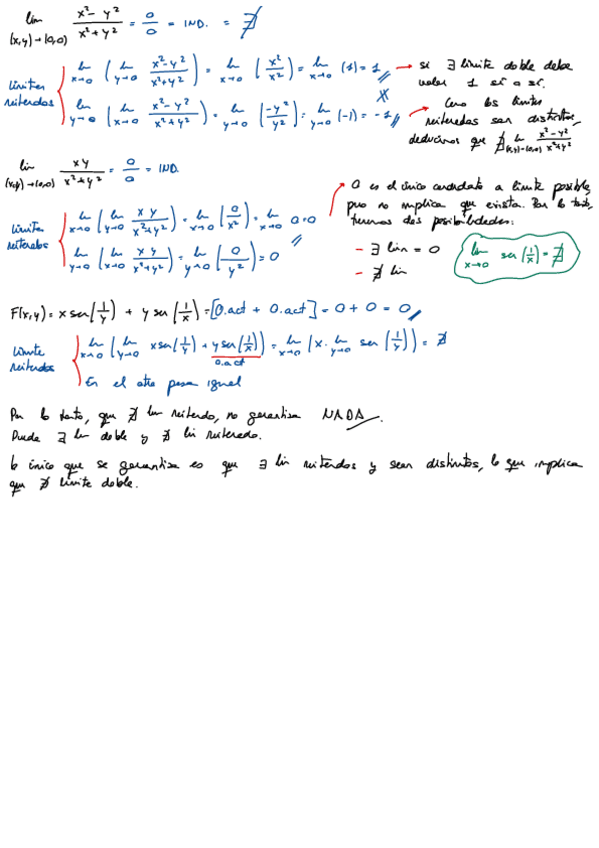 lim (x,y)→(0,0) x²-y² / x²+y² = 0/0 = IND. = ∄
límites reiterados
lim x→0 (lim y→0 x²-y² / x²+y²) = lim x→0 (x²/x²) = lim x→0 (1) = 1 → si ∃ límite doble debe valer 1 sí o sí.
≠
lim y→0 (lim x→0 x²-y² / x²+y²) = lim y→0 (-y²/y²) = lim y→0 (-1) = -1
Como los límites
reiterados son distintos,
deducimos que ∄ lim (x,y)→(0,0) x²-y² / x²+y²
lim (x,y)→(0,0) xy / x²+y² = 0/0 = IND.
límites reiterados
lim x→0 (lim y→0 xy / x²+y²) = lim x→0 (0/x²) = lim x→0 0 = 0
lim y→0 (lim x→0 xy / x²+y²) = lim y→0 (0/y²) = 0
0 es el único candidato a límite posible,
pero no implica que exista. Por lo tanto,
tenemos dos posibilidades:
- ∃ lim = 0
- ∄ lim
lim x→0 sen(1/x) = ∄
F(x,y) = x sen(1/y) + y sen(1/x) = [0.act + 0.act] = 0 + 0 = 0
límite reiterados
lim x→0 (lim y→0 x sen(1/y) + y sen(1/x)) = lim x→0 (x · lim y→0 sen(1/y)) = ∄
0.act
En el otro pasa igual
Por lo tanto, que ∄ lim reiterado, no garantiza NADA.
Puede ∃ lim doble y ∄ lim reiterado.
lo único que se garantiza es que ∃ lim reiterdos y sean distintos, lo que implica
que ∄ límite doble.